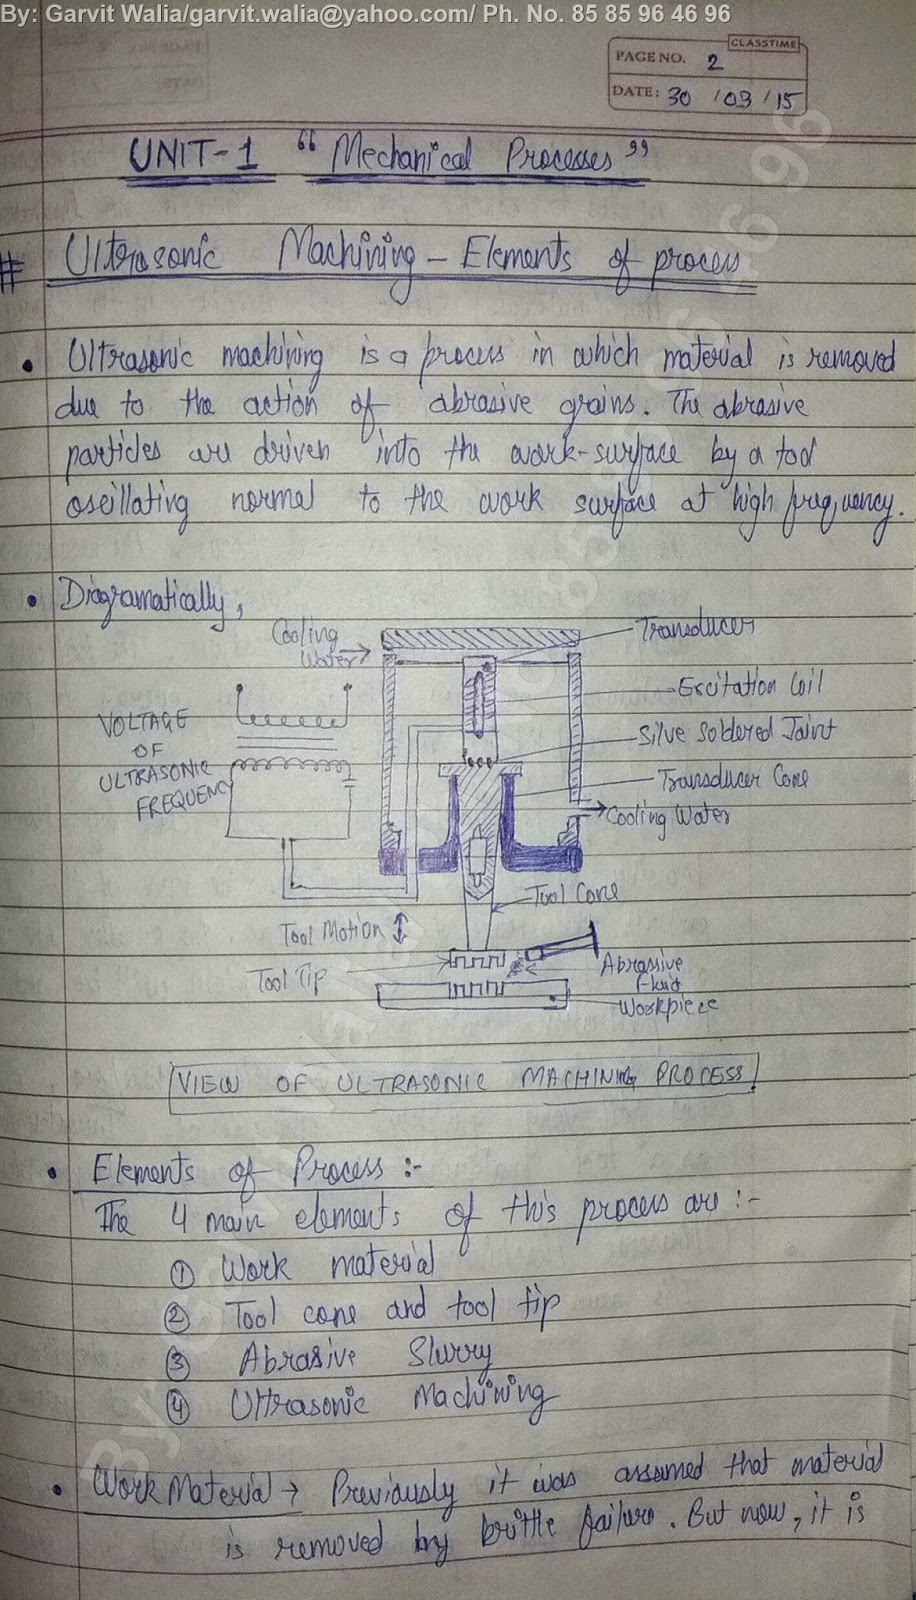 By: Garvit Walia/garvit.walia@yahoo.com/ Ph. No. 85 85 96 46 96
CLASSTIME
PAGE NO. 2
DATE: 30 / 03 / 15
UNIT-1 "Mechanical Processes"
# Ultrasonic Machining - Elements of process
• Ultrasonic machining is a process in which material is removed
due to the action of abrasive grains. The abrasive
particles are driven into the work-surface by a tool
oscillating normal to the work surface at high frequency.
• Diagramatically,
Cooling
Water
Transducer
Excitation Coil
VOLTAGE
OF
ULTRASONIC
FREQUENCY
Silve Soldered Joint
Transducer Cone
Cooling Water
Tool Cone
Tool Motion
Tool Tip
Abrassive
fluid
Workpiece
VIEW OF ULTRASONIC MACHINING PROCESS
• Elements of Process :-
The 4 main elements of this process are :-
① Work material
② Tool cone and tool tip
③ Abrasive Slurry
④ Ultrasonic Machining
• Work Material → Previously it was assumed that material
is removed by brittle failure. But now, it is